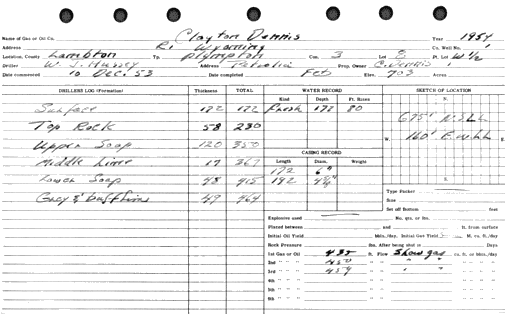 Name of Gas or Oil Co. Clayton Dennis Year 1954
Address R. Wyoming Co. Well No. 1
Location, County Lambton Tp. Plympton Con. 3 Lot 8 Pt. Lot W 1/2
Driller W. J. Address Petrolia Prop. Owner C. Dennis
Date commenced 10 Dec. 53 Date completed Feb Elev. 703 Acres
DRILLERS LOG (Formation) Thickness TOTAL WATER RECORD SKETCH OF LOCATION
Kind Depth Ft. Rises N.
Surface 172 172 Fresh 172 80
675' N.S.L.L
Top Rock 58 230
W. 160' E.W.L.L E.
Upper Soap 120 350
CASING RECORD
Middle Lime 17 367
Length Diam. Weight
172 6"
Lower Soap 48 415 192 4 3/4" S.
Type Packer
Grey & Dufflins 49 464
Size
Set off Bottom feet
Explosives used No. qts. or lbs.
Placed between and ft. from surface
Initial Oil Yield bbls./day. Initial Gas Yield M. cu. ft./day
Rock Pressure lbs. After being shut in Days
1st Gas or Oil 435 ft. Flow Show gas cu. ft. or bbls./day
2nd " " " 450 " " " " " "
3rd " " " 459 " " " " " "
4th " " " " " " "
5th " " " " " " "
6th " " " " " " "